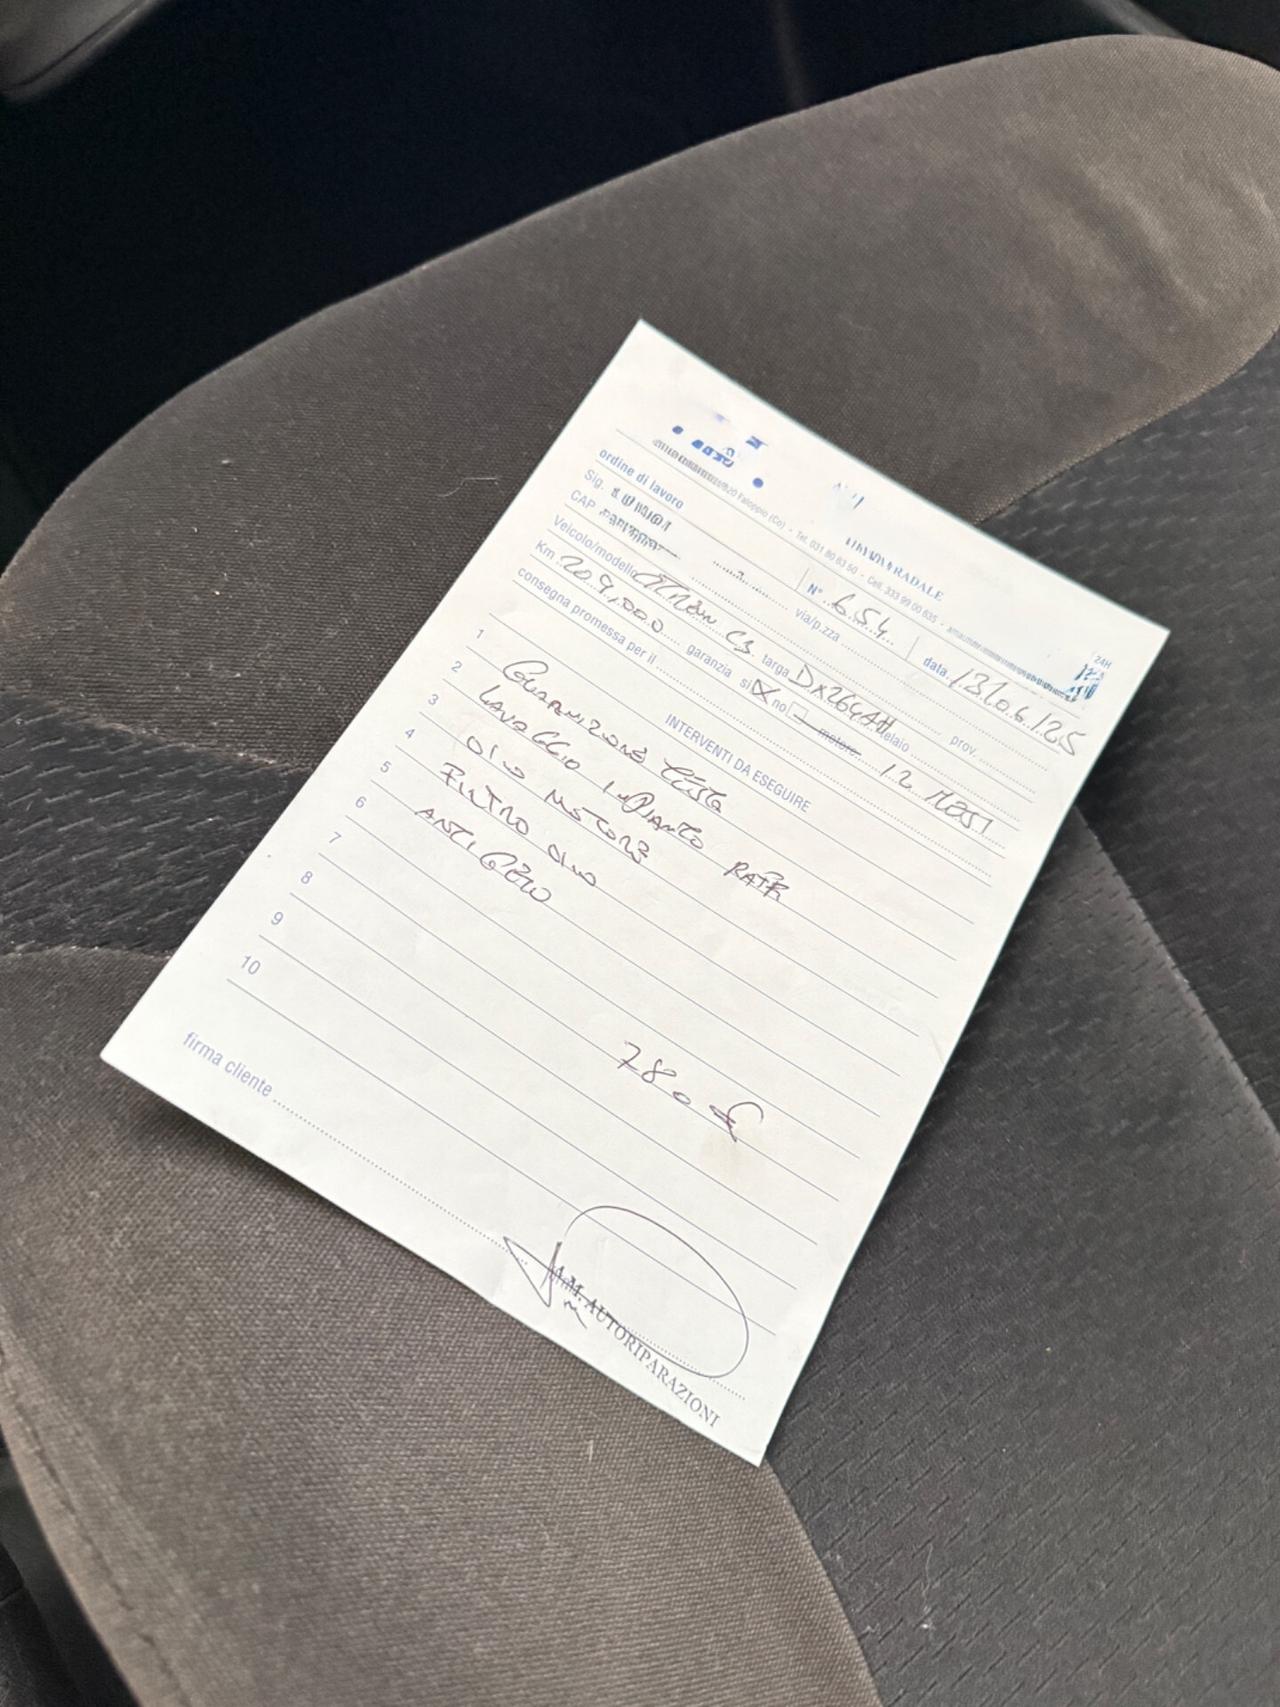 Faloppio (Co) - Tel. 031 80 83 50 - Cell. 333 99 00 635
ordine di lavoro
Sig.
N° 654
data 13/06/25
CAP
via/p.zza
prov.
Veicolo/modello CITROEN C3 targa DX264AH telaio
Km 209,000 garanzia si X no motore 12 MESI
consegna promessa per il
INTERVENTI DA ESEGUIRE
1 GUARNIZIONE TESTA
2 LAVAGGIO IMPIANTO RAFR
3 OLIO MOTORE
4 FILTRO OLIO
5 ANTIGELO
6
7
8
9
10
780 €
firma cliente
A.M. AUTORIPARAZIONI